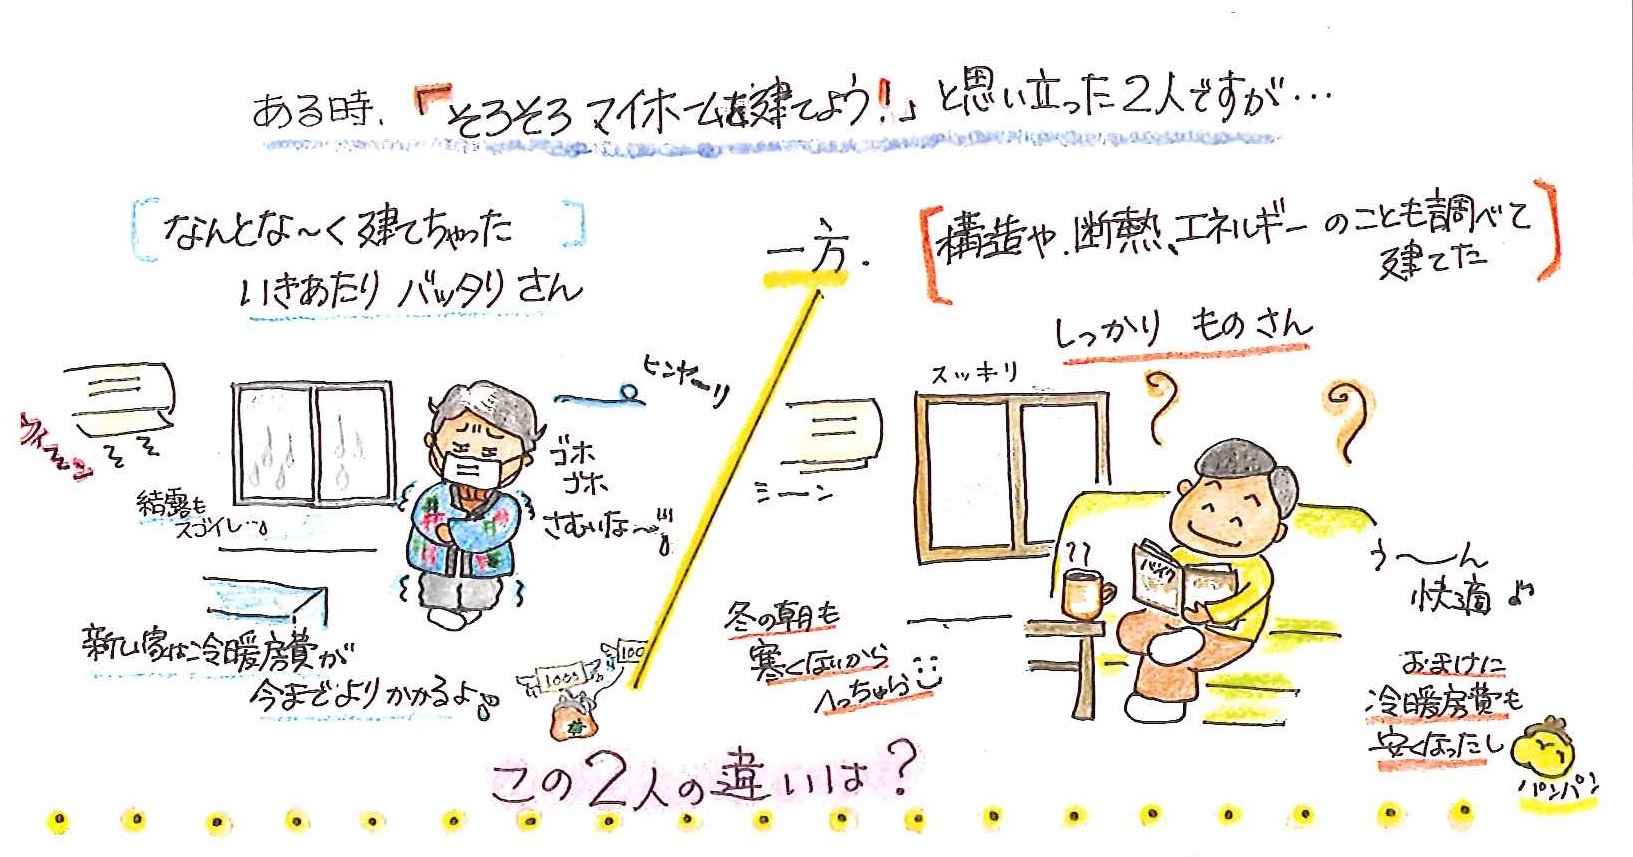 ある時、「そろそろ マイホームを建てよう!」と思い立った2人ですが…
なんとな〜く建てちゃった
いきあたり バッタリ さん
一方.
構造や、断熱、エネルギーのことも調べて
建てた
しっかり ものさん
ウィーン
結露も
スゴイし…
ヒンヤ〜リ
ゴホ
ゴホ
さむいな〜
新しい家は冷暖房費が
今までよりかかるよ
1000
100
スッキリ
ミーン
冬の朝も
寒くないから
へっちゃら
バイク
う〜ん
快適♪
おまけに
冷暖房費も
安くなったし
パンパン
この2人の違いは?